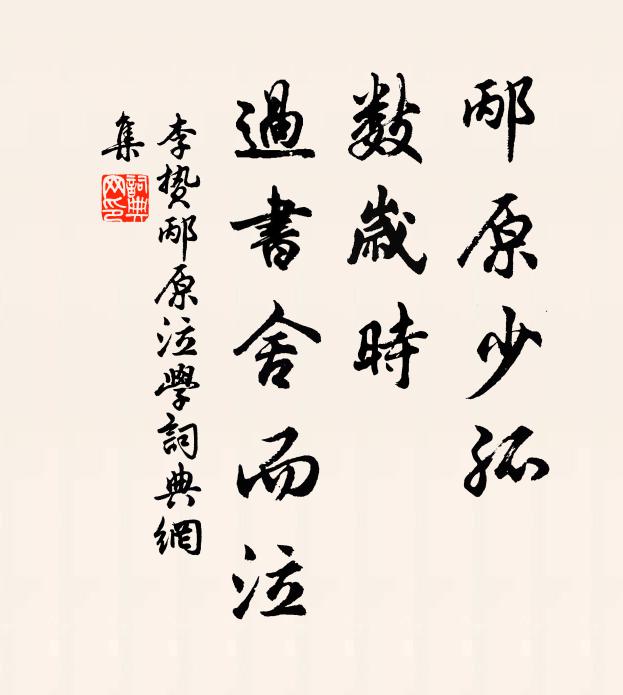 邴原少孤
數歲時
過書舍而泣
李贄邴原泣學詞典網
集
詞典
网印